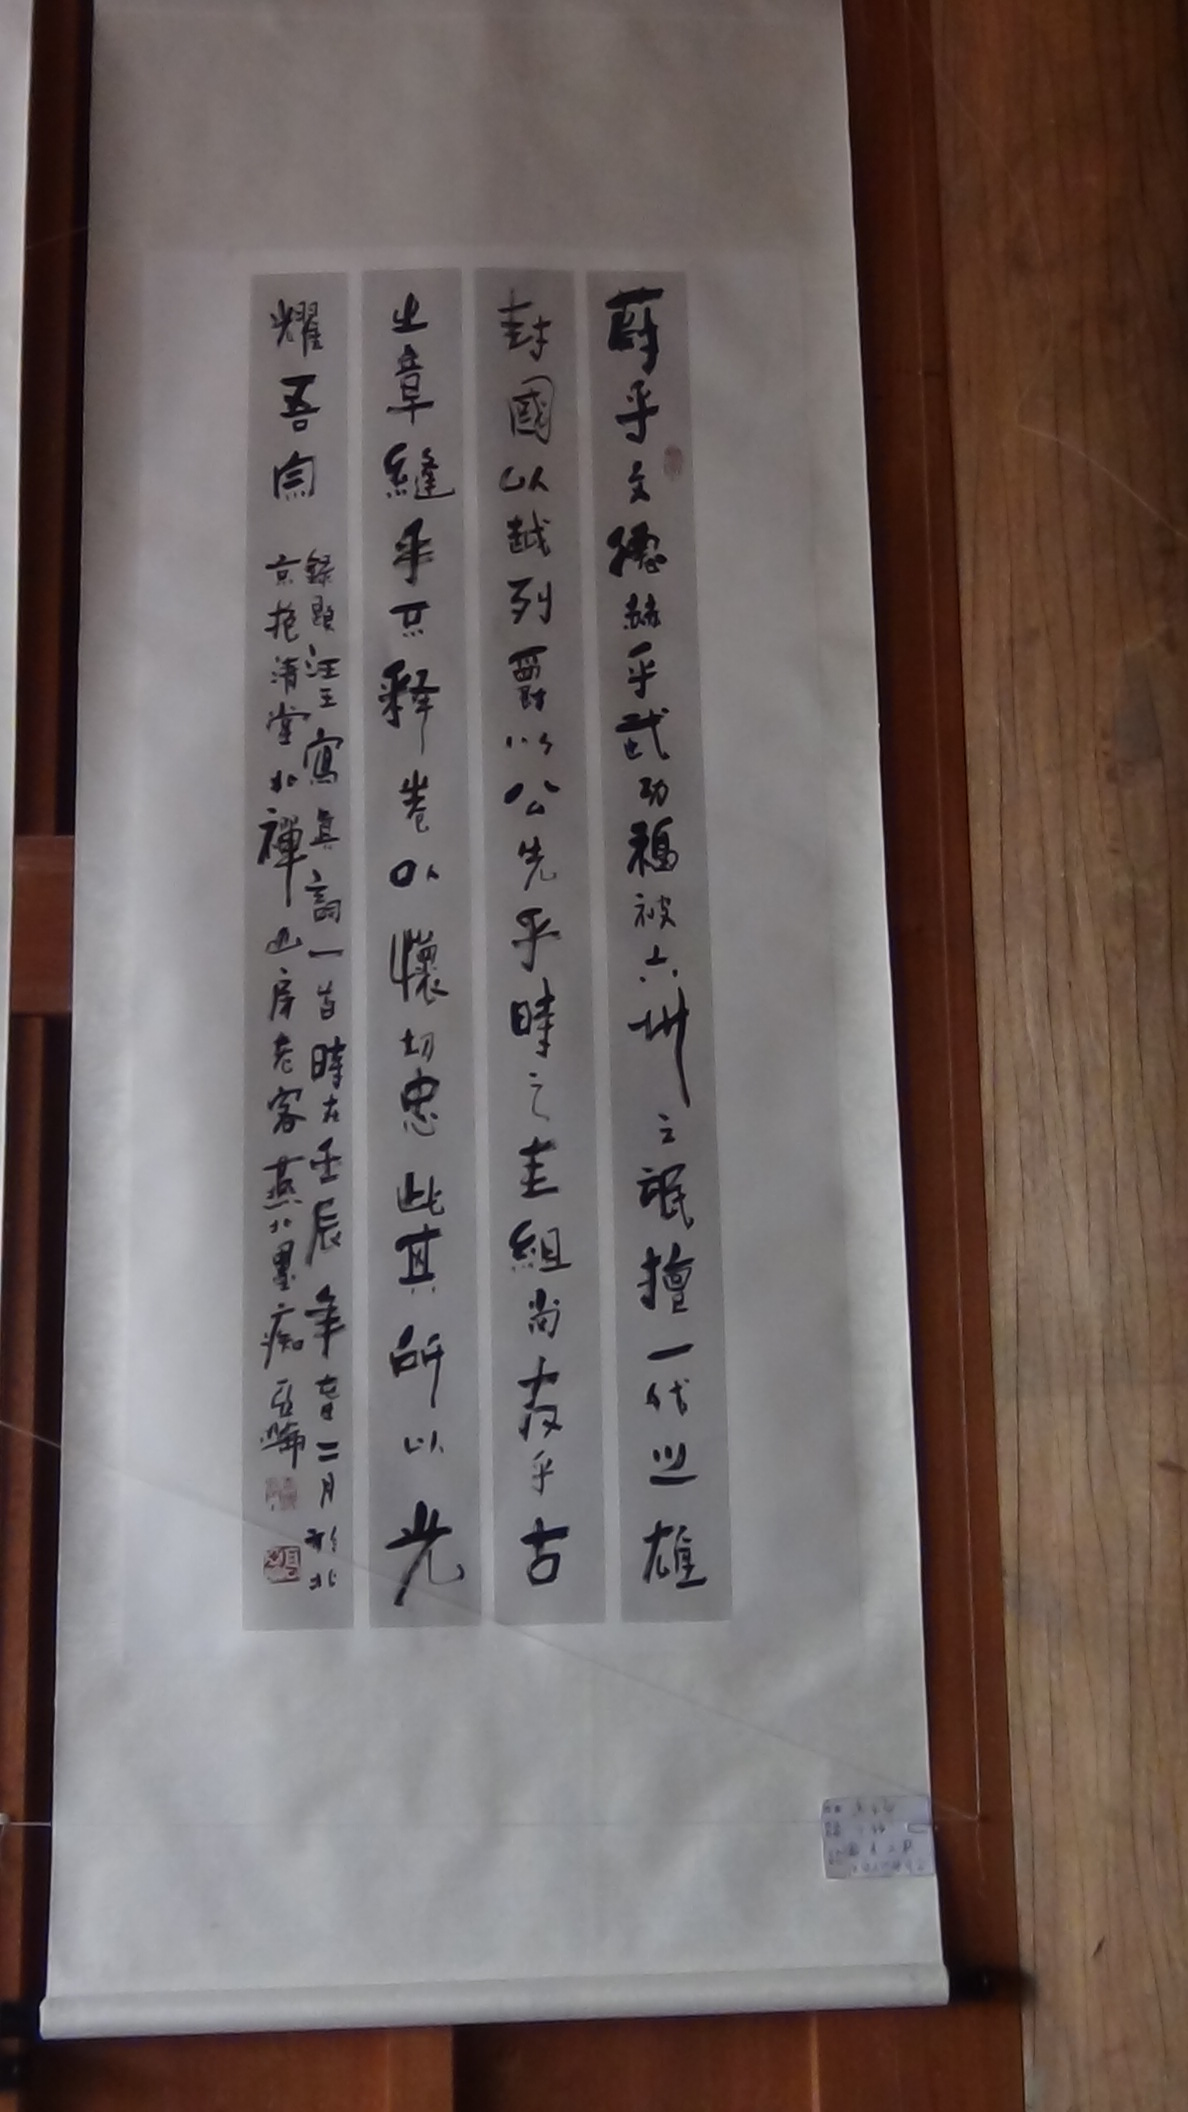 蔚乎文德赫乎武功福被六州之氓擅一代之雄
封國以越列爵以公先乎時之圭組尚友乎古
之章縫手不釋卷口懷切忠此其所以光
耀吾宗
錄題汪王寫真詞一首時在壬辰年春二月於北
京抱清堂北禪山房老客燕北墨痴